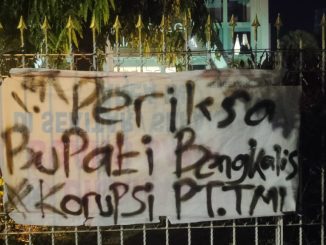 Periksa
Bupati Bengkalis
Korupsi PT.TMI